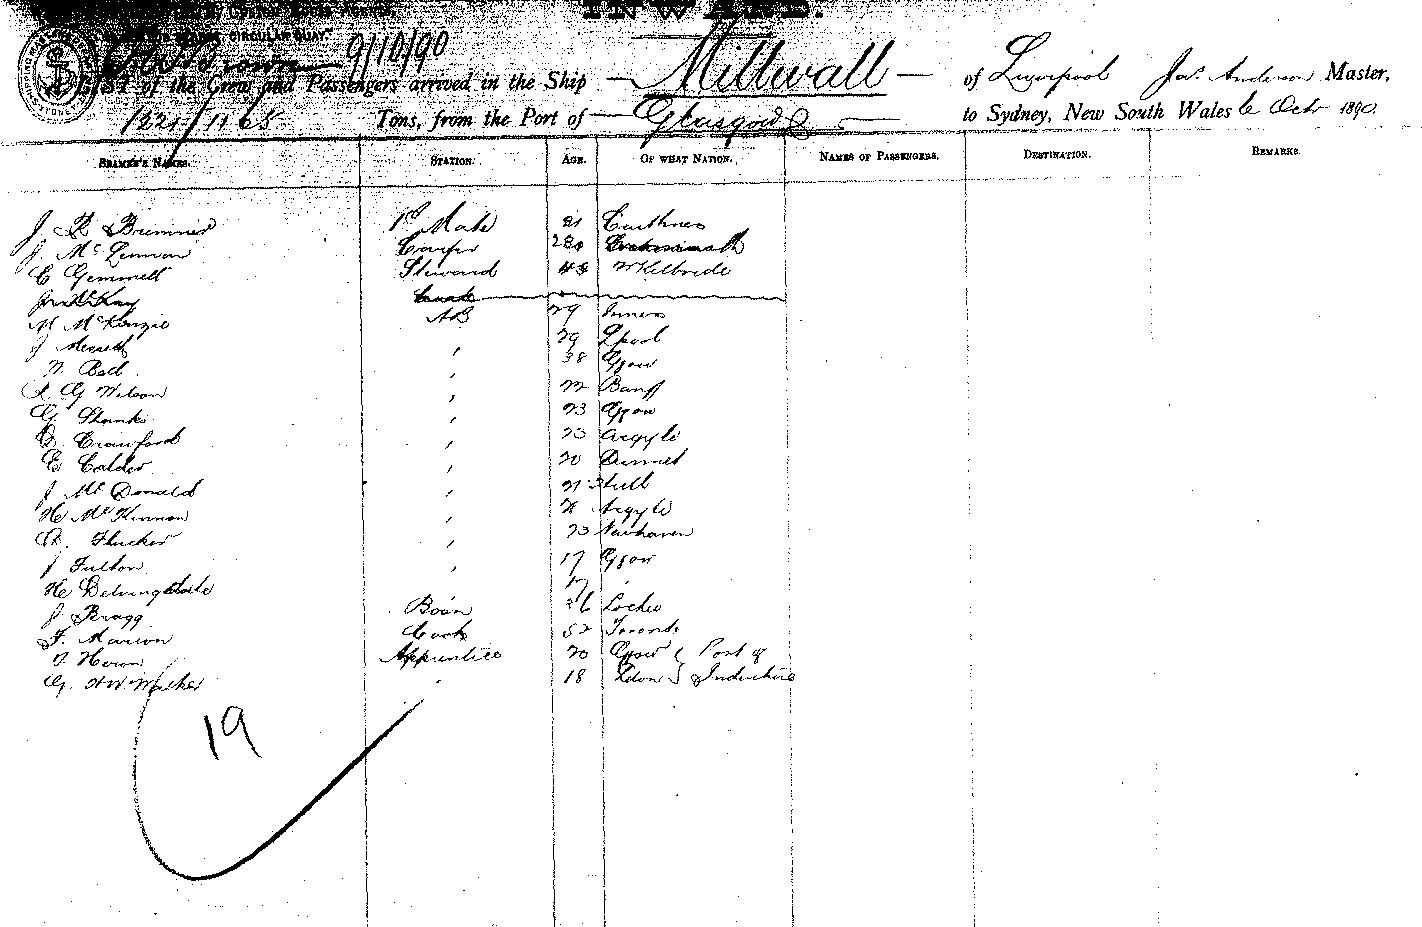 INWARD.
CIRCULAR QUAY.
9/10/90
A LIST of the Crew and Passengers arrived in the Ship Millwall of Liverpool Jas. Anderson Master,
1221/1165 Tons, from the Port of Glasgow to Sydney, New South Wales 6 Octr 1890.
SEAMEN'S NAMES. STATION. AGE. OF WHAT NATION. NAMES OF PASSENGERS. DESTINATION. REMARKS.
J. R Bremner 1st Mate Caithness
J. McLennan Carpr 28
C Gemmell Steward 48 W Kilbride
McKay Cook
M McKenzie AB 29 Inverss
J 29 Lpool
W. Bell 38 Ggow
G Wilson 22 Banff
G Shanks 23 Ggow
D Crawford 23 Argyle
E Calder 20 Dunnet
J McDonald 21 Hull
He McKinnon Argyle
D. Flucker 23 Newhaven
J Fulton 17 Ggow
He 17
J. Bragg Bosn 36
F. Marion Cook 52 Toronto
Heron Apprentice 20 Ggow } Port of
G. W Walker 18 Ldon } Indenture
19